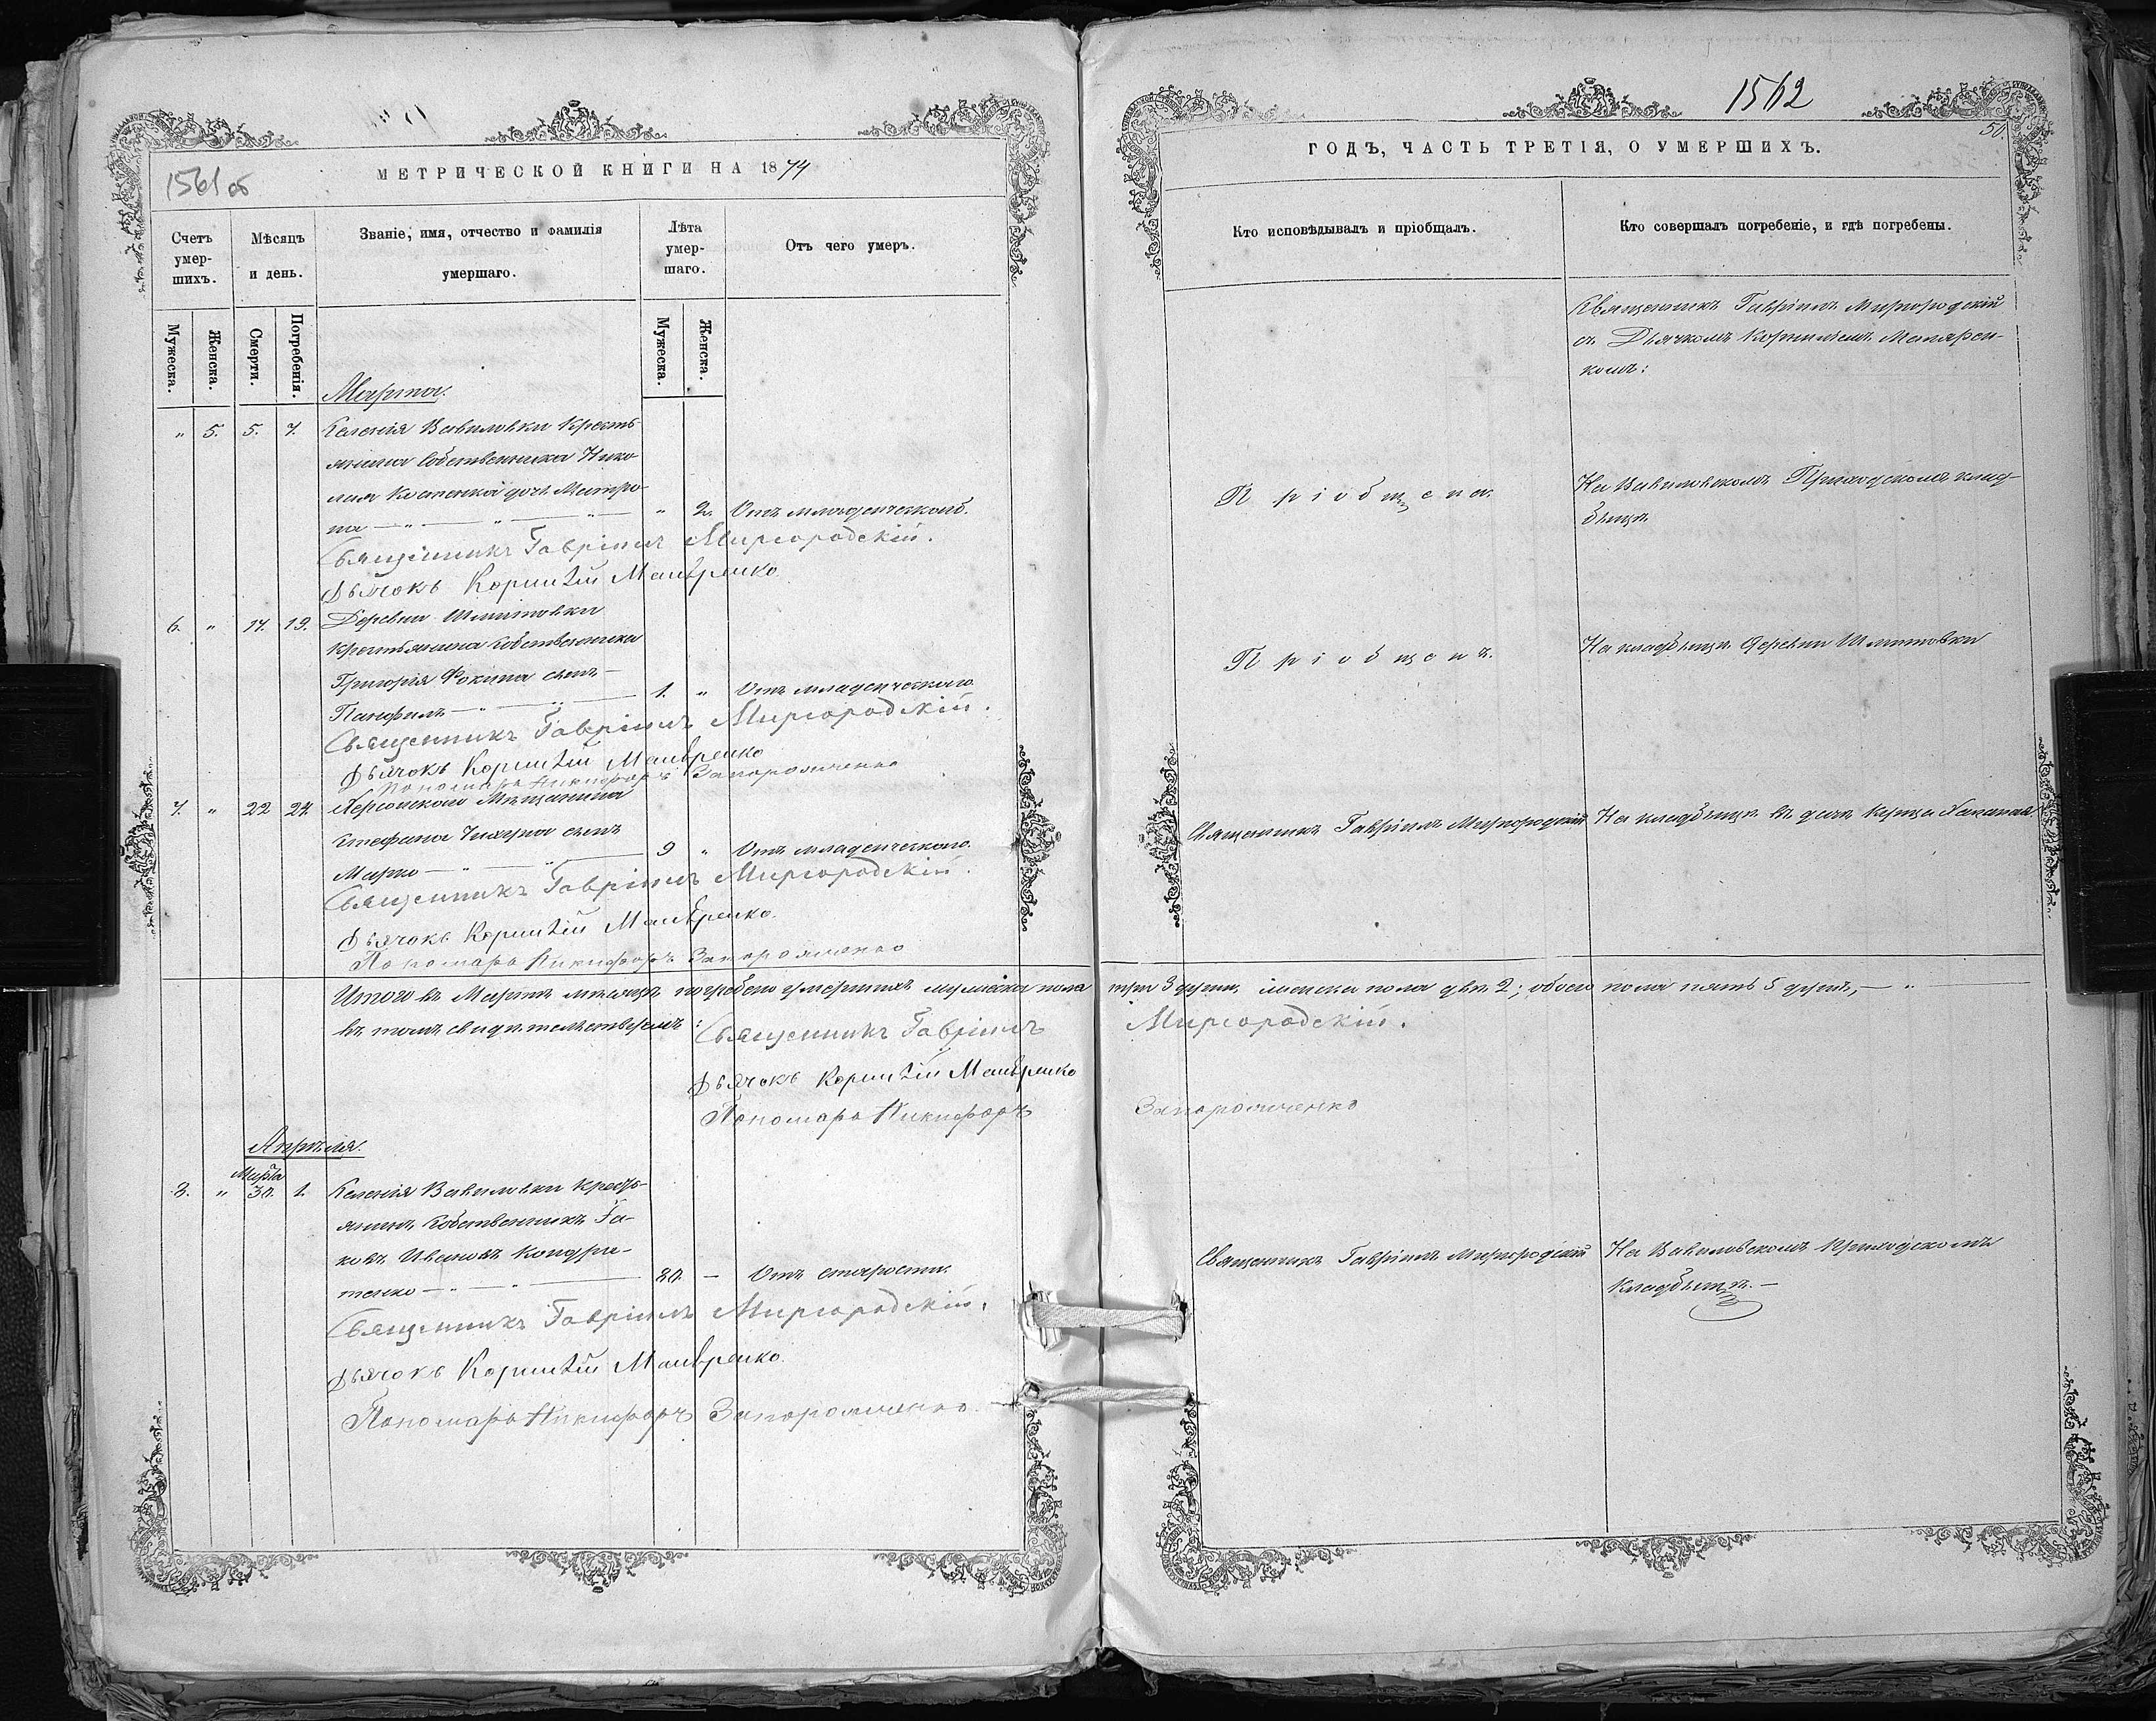 1561 об
МЕТРИЧЕСКОЙ КНИГИ НА 1874
Счетъ умер-шихъ.
Мѣсяцъ и день.
Званіе, имя, отчество и фамилія умершаго.
Лѣта умер-шаго.
Отъ чего умеръ.
Мужеска.
Женска.
Смерти.
Погребенія.
Мужеска.
Женска.
Марта.
„ 5. 5. 7. Селенія Вавиловки Кресть-
янина собственника Нико-
лая Костенка дочь Матро-
на — „ — „ — „ — „ 2. Отъ младенческой.
Священникъ Гавріилъ Миргородскій.
Дьячокъ Корнилій Макаренко.
6. „ 17. 19. Деревни Шмитовки
Крестьянина собственника
Григорія Фокина сынъ —
Панфилъ — „ — „ — 1. „ Отъ младенческаго
Священникъ Гавріилъ Миргородскій.
Дьячокъ Корнилій Макаренко
Пономарь Никифоръ Запорожченко
7. „ 22 24. Херсонскаго Мѣщанина
Стефана Чихерна сынъ
Марко — „ — „ — 9 „ Отъ младенческаго.
Священникъ Гавріилъ Миргородскій.
Дьячокъ Корнилій Макаренко.
Пономарь Никифоръ Запорожченко
Итого въ Мартѣ мѣсяцѣ погребено умершихъ мужеска пола
въ томъ свидѣтельствуемъ: Священникъ Гавріилъ
Дьячокъ Корнилій Макаренко
Пономарь Никифоръ
Апрѣля.
Марта
8. „ 30. 1. Селенія Вавиловки Кресть-
янинъ собственникъ Іа-
ковъ Ивановъ Кондра-
тенко — „ — „ — 80. — Отъ старости.
Священникъ Гавріилъ Миргородскій.
Дьячокъ Корнилій Макаренко.
Пономарь Никифоръ Запорожченко.
1562
50
ГОДѢ, ЧАСТЬ ТРЕТІЯ, О УМЕРШИХЪ.
Кто исповѣдывалъ и пріобщалъ.
Кто совершалъ погребеніе, и гдѣ погребены.
Священникъ Гавріилъ Миргородскій
съ Дьячкомъ Корниліемъ Макарен-
комъ:
Пріобщена.
На Вавиловскомъ Приходскомъ клад-
бищѣ.
Пріобщенъ.
На кладбищѣ деревни Шмитовки
Священникъ Гавріилъ Миргородскій
На кладбищѣ въ дачѣ купца
три 3 души, женска пола двѣ 2; обоего пола пять 5 душъ, — „ —
Миргородскій.
Запорожченко
Священникъ Гавріилъ Миргородскій
На Вавиловскомъ Приходскомъ
кладбищѣ. —